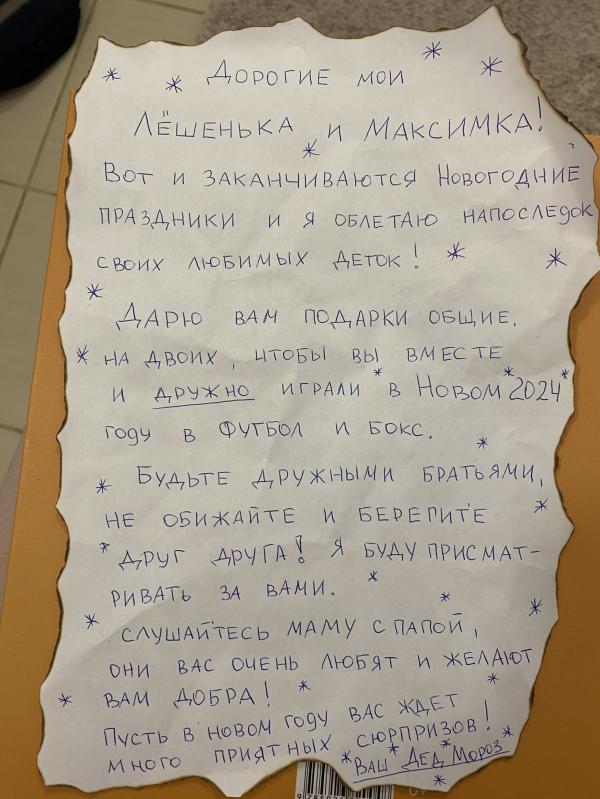 Дорогие мои
Лёшенька и Максимка!
Вот и заканчиваются Новогодние
праздники и я облетаю напоследок
своих любимых деток!
Дарю вам подарки общие,
на двоих, чтобы вы вместе
и дружно играли в Новом 2024
году в футбол и бокс.
Будьте дружными братьями,
не обижайте и берегите
друг друга! Я буду присмат-
ривать за вами.
Слушайтесь маму с папой,
они вас очень любят и желают
вам добра!
Пусть в новом году вас ждет
много приятных сюрпризов!
Ваш Дед Мороз